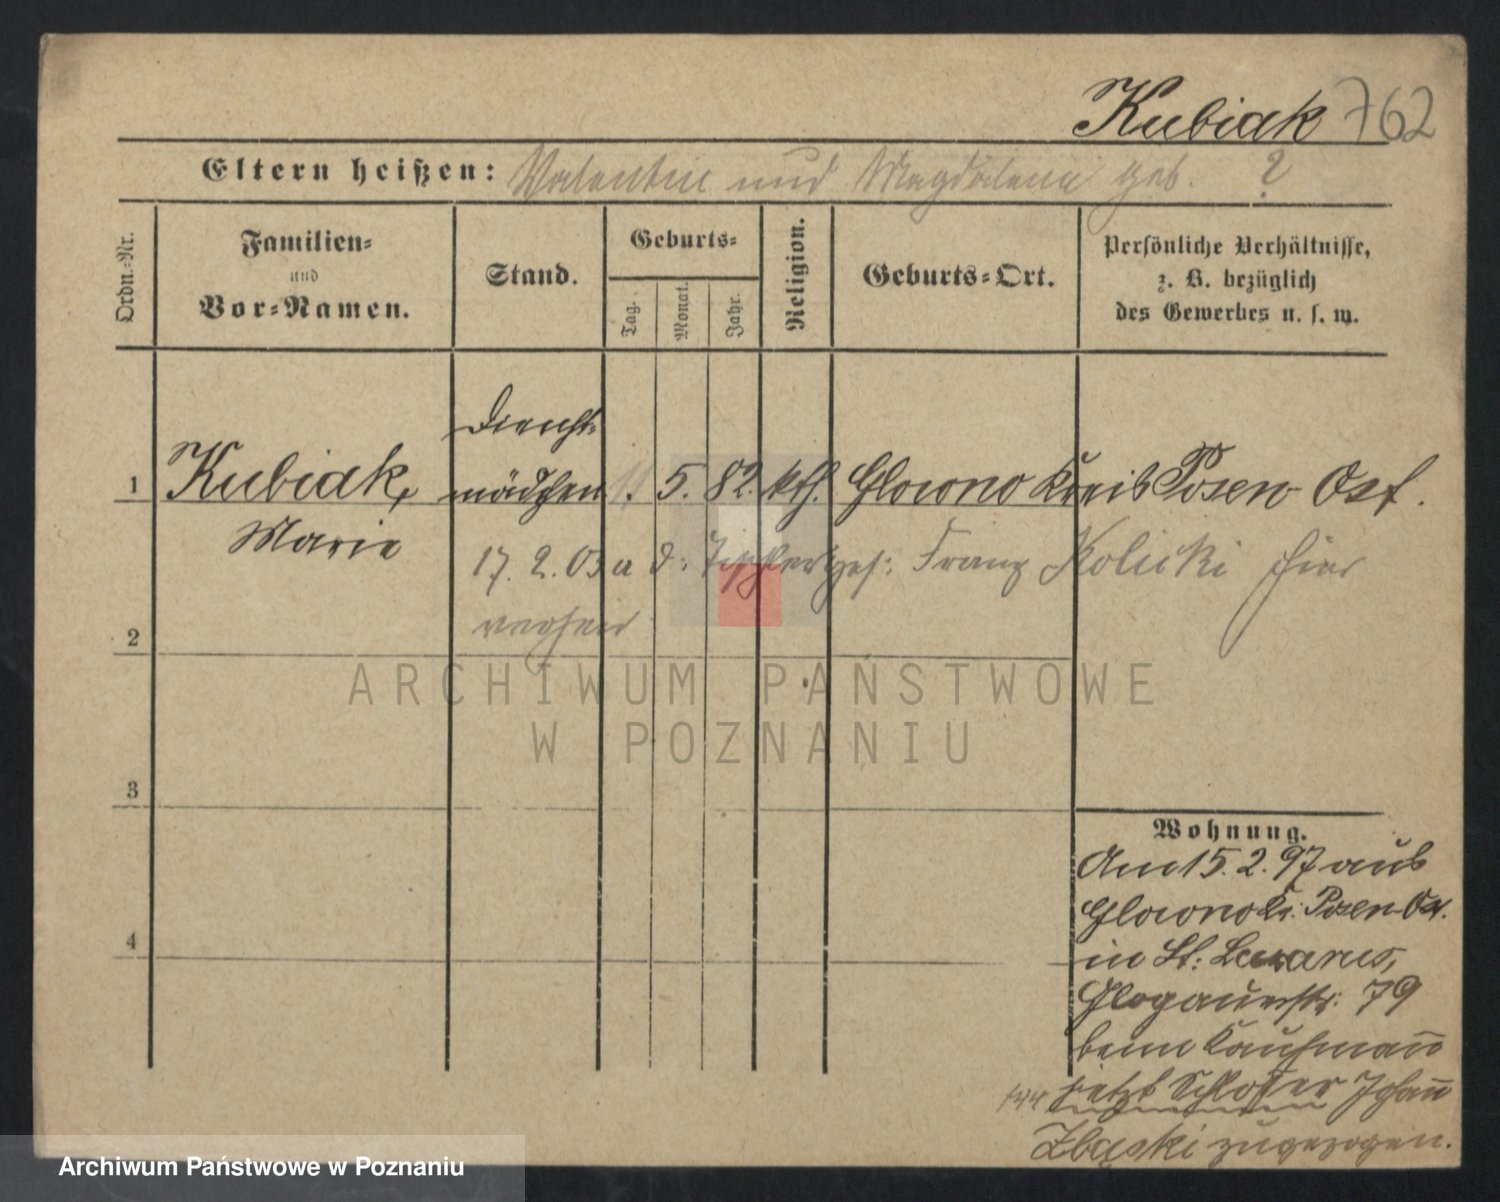 Kubiak 762
Eltern heißen: Valentin und Magdalena geb. ?
Ordn.-Nr.
Familien-
und
Vor-Namen.
Stand.
Geburts-
Tag.
Monat.
Jahr.
Religion.
Geburts-Ort.
Persönliche Verhältnisse,
z. B. bezüglich
des Gewerbes u. s. w.
1
Kubiak,
Marie
Dienst-
mädchen
11. 5. 82. kth. Glowno Kreis Posen Ost.
17. 2. 03 a d: Tischlerges: Franz Kolicki hier
verheir
2
3
4
Wohnung.
Am 15. 2. 97 aus
Glowno Kr. Posen Ost.
in St: Lazarus,
Glogauerstr: 79
beim Kaufmann
jetzt Schlosser Johann
Zbąski zugezogen.
ARCHIWUM PAŃSTWOWE
W POZNANIU
Archiwum Państwowe w Poznaniu